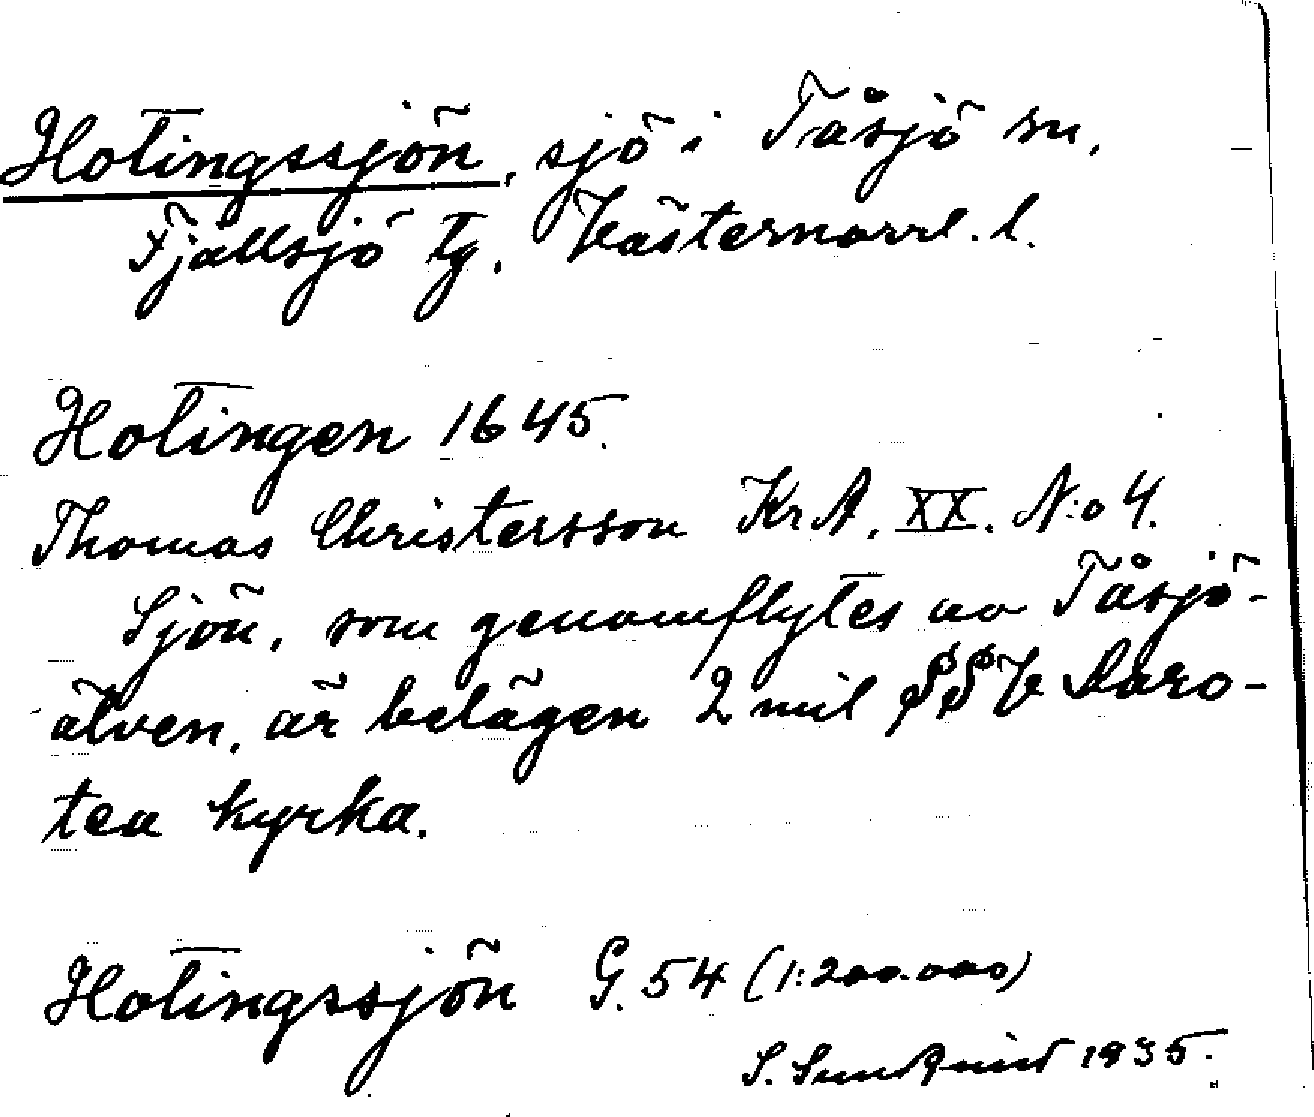 Hotingssjön, sjö i Tåsjö sn,
Fjällsjö tg. Västernorrl. l.
Hotingen 1645.
Thomas Christersson KrA. XX. N:o 4.
Sjön, som genomflytes av Tåsjö-
älven, är belägen 2 mil SSV Doro-
tea kyrka.
Hotingssjön G. 54 (1:200.000)
S. Sundqvist 1935.